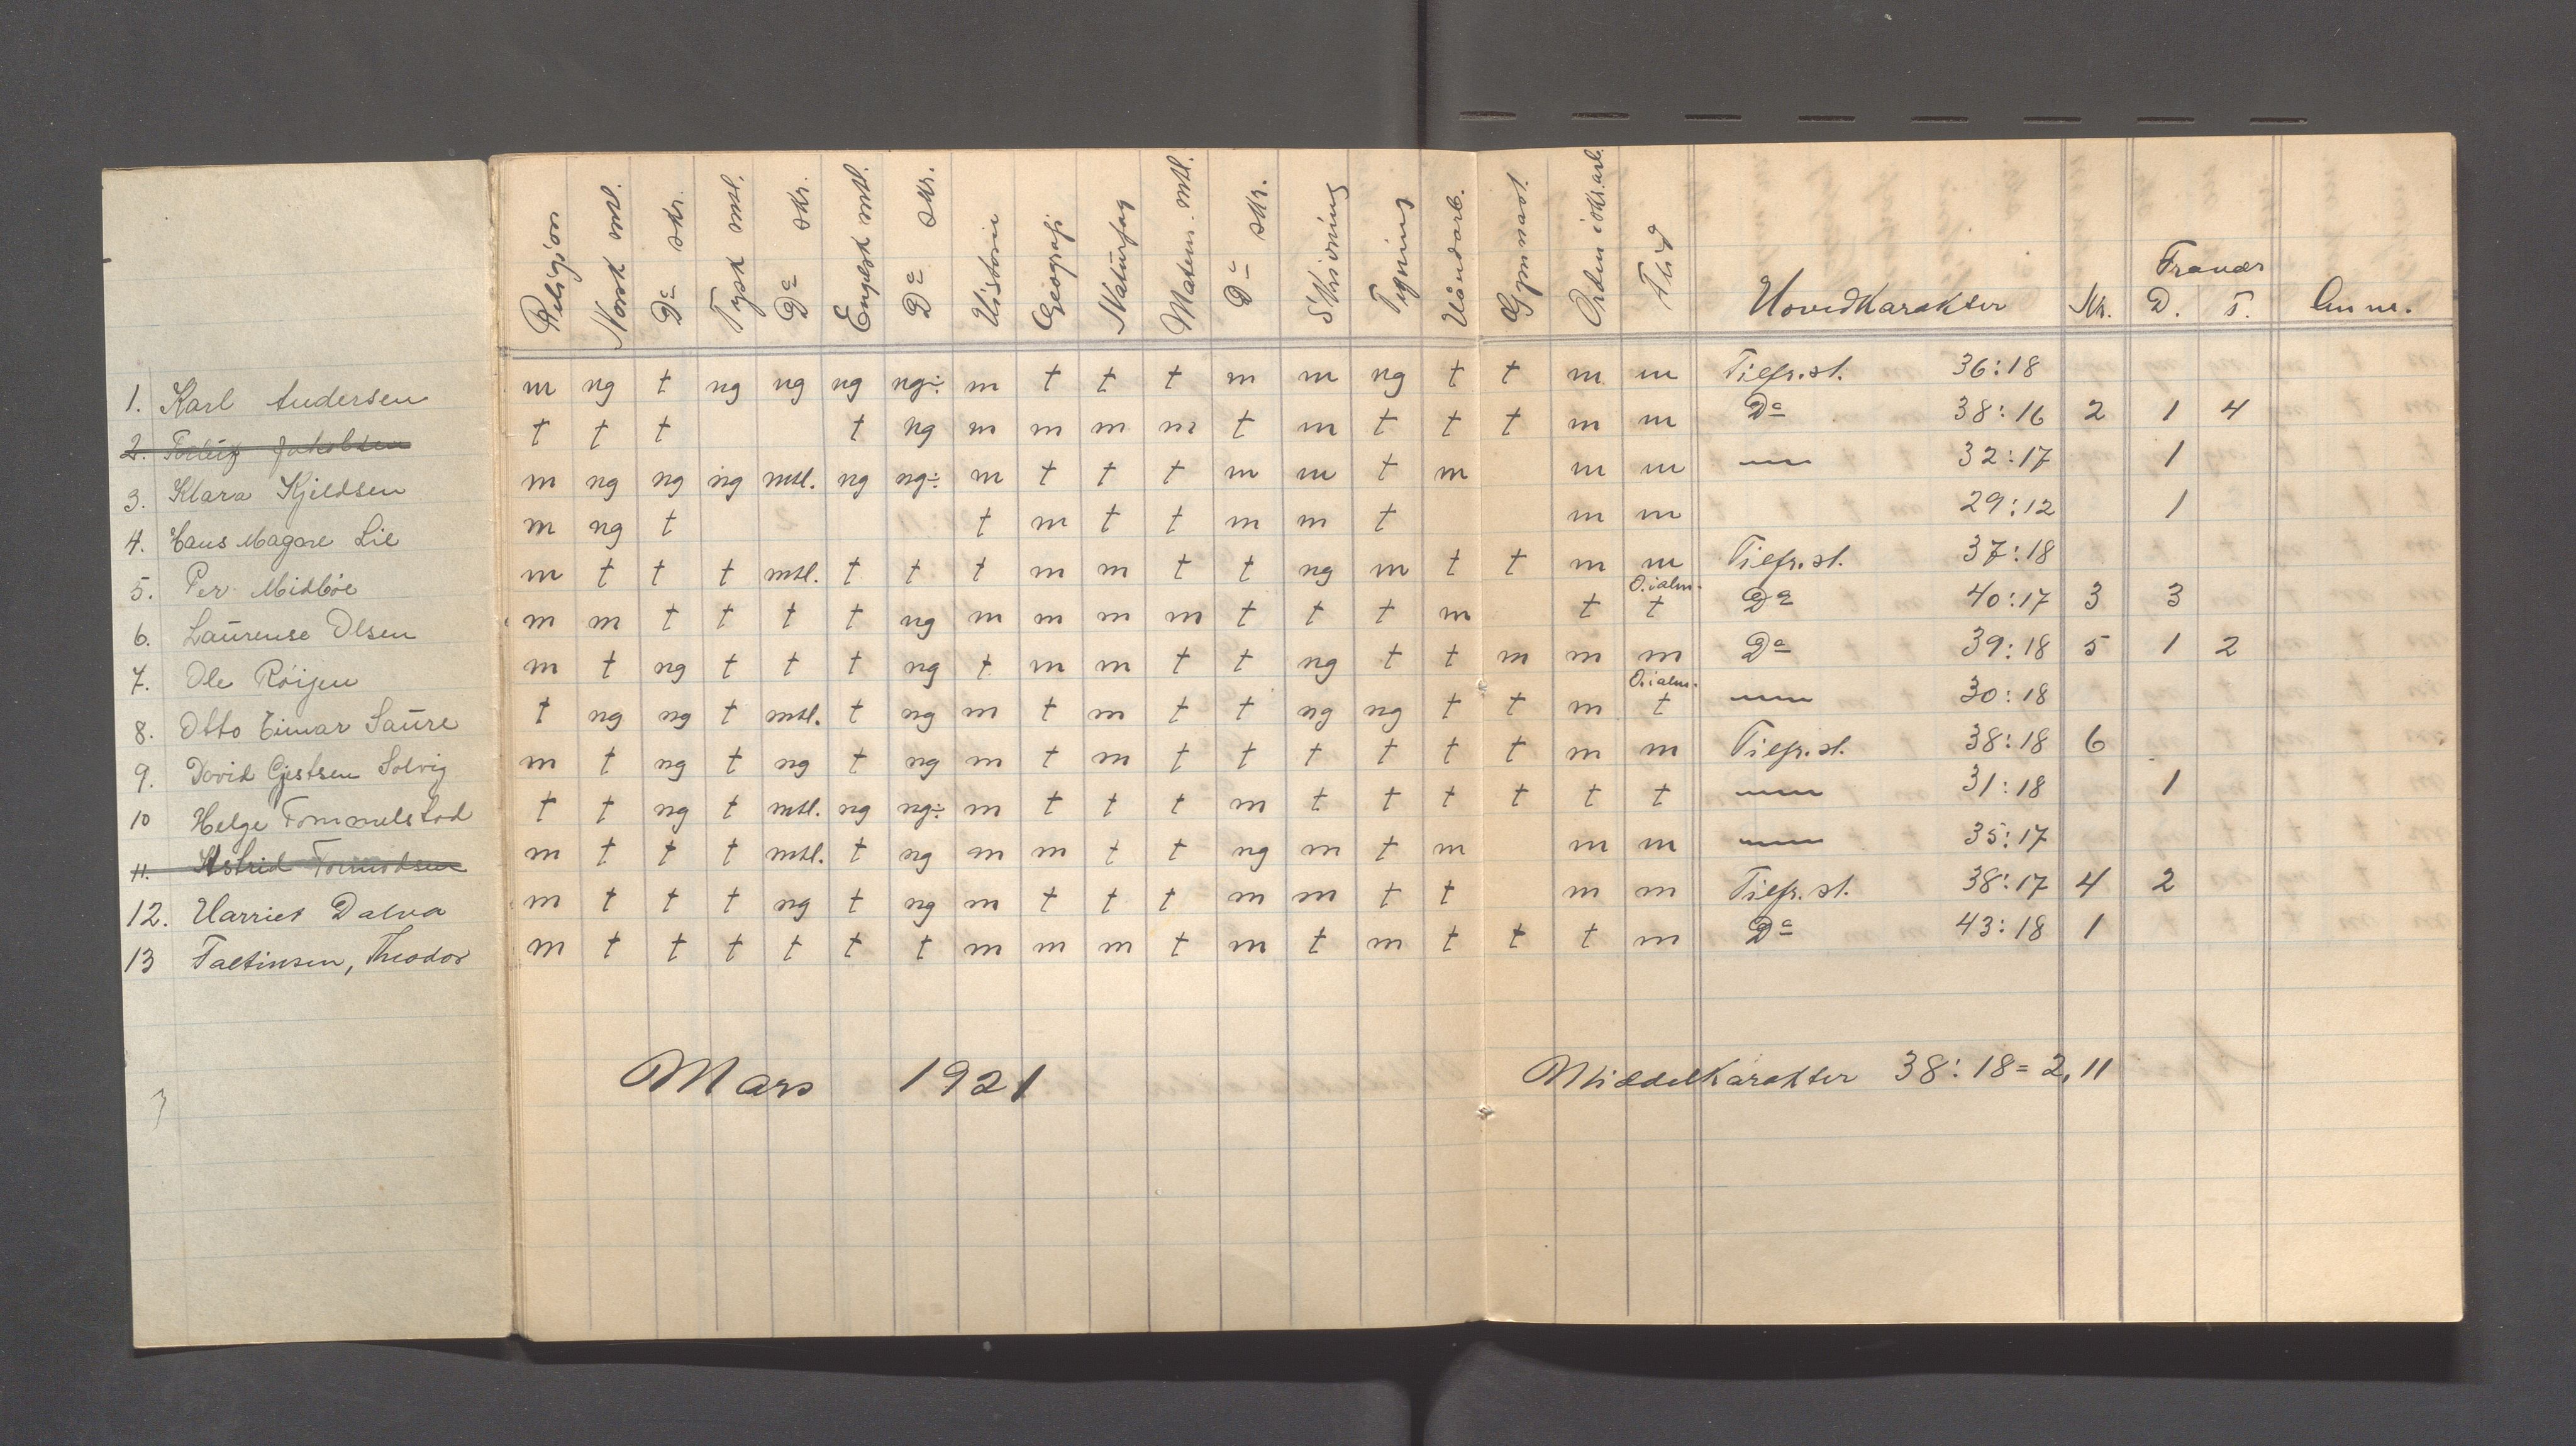 Religion Norsk mtl. Do skr. Tysk mtl. Do skr. Engelsk mtl. Do skr. Historie Geografi Naturfag Matem. mtl. Do skr. Skrivning Tegning Håndarb. Gymnast. Orden i skr. arb. Flid Hovedkarakter Nr. Fravær D. T. Anm.
1. Karl Andersen m ng t ng ng ng ng÷ m t t t m m ng t t m m Tilfr.st. 36:18
2. Jakobsen t t t t ng m m m m t m t t t m m Do 38:16 2 1 4
3. Klara Kjeldsen m ng ng ng mtl. ng ng÷ m t t t m m t m m m — 32:17 1
4. Hans Magore Lie m ng t t m t t m m t m m 29:12 1
5. Per Midbøe m t t t mtl. t t t m m t t ng m t t m m Tilfr.st. 37:18
6. Laurense Olsen m m t t t t ng m m m m t t t m t O.i alm. t Do 40:17 3 3
7. Ole Röijen m t ng t t t ng t m m t t ng t t m m m Do 39:18 5 1 2
8. Otto Einar Saure t ng ng t mtl. t ng m t m t t ng ng t t m O.i alm. t — 30:18
9. David Gjestsen Solvig m t ng t ng t ng m t m t t t t t t m m Tilfr.st. 38:18 6
10 Helge Tommelstad t t ng t mtl. ng ng÷ m t t t m t t t t t t — 31:18 1
11. Astrid Tormodsen m t t t mtl. t ng m m t t ng m t m m m — 35:17
12. Harriet Dalva m t t t ng t ng m t t t m m t t m m Tilfr.st. 38:17 4 2
13 Faltinsen, Theodor m t t t t t t m m m t m t m t t t m Do 43:18 1
Mars 1921 Middelkarakter 38:18 = 2,11